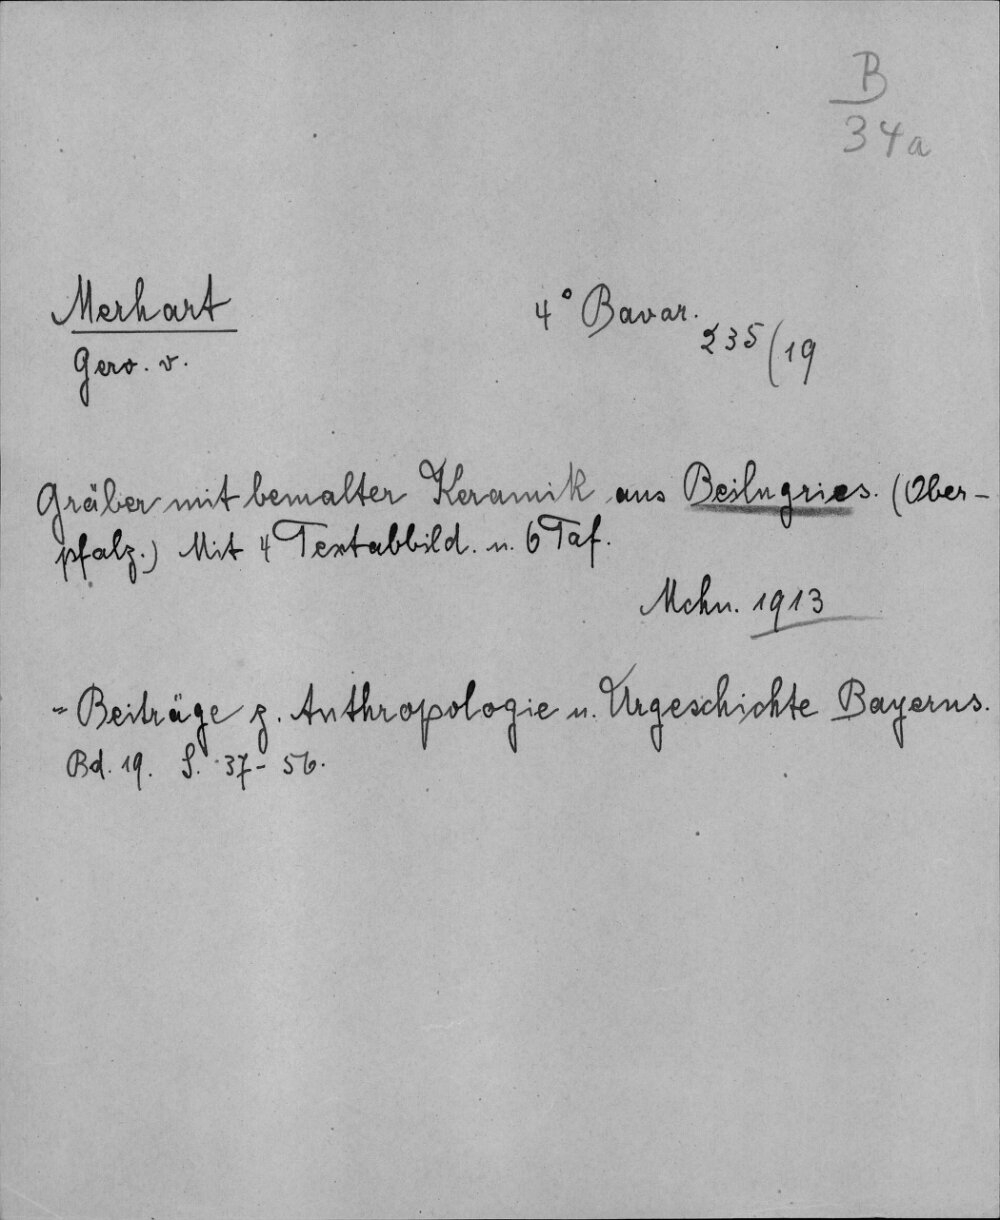 B
34a
Merhart
Gero. v.
4° Bavar. 235/19
Gräber mit bemalter Keramik aus Beilngries. (Ober-
pfalz.) Mit 4 Textabbild. u. 6 Taf.
Mchn. 1913
= Beiträge z. Anthropologie u. Urgeschichte Bayerns.
Bd. 19. S. 37-56.